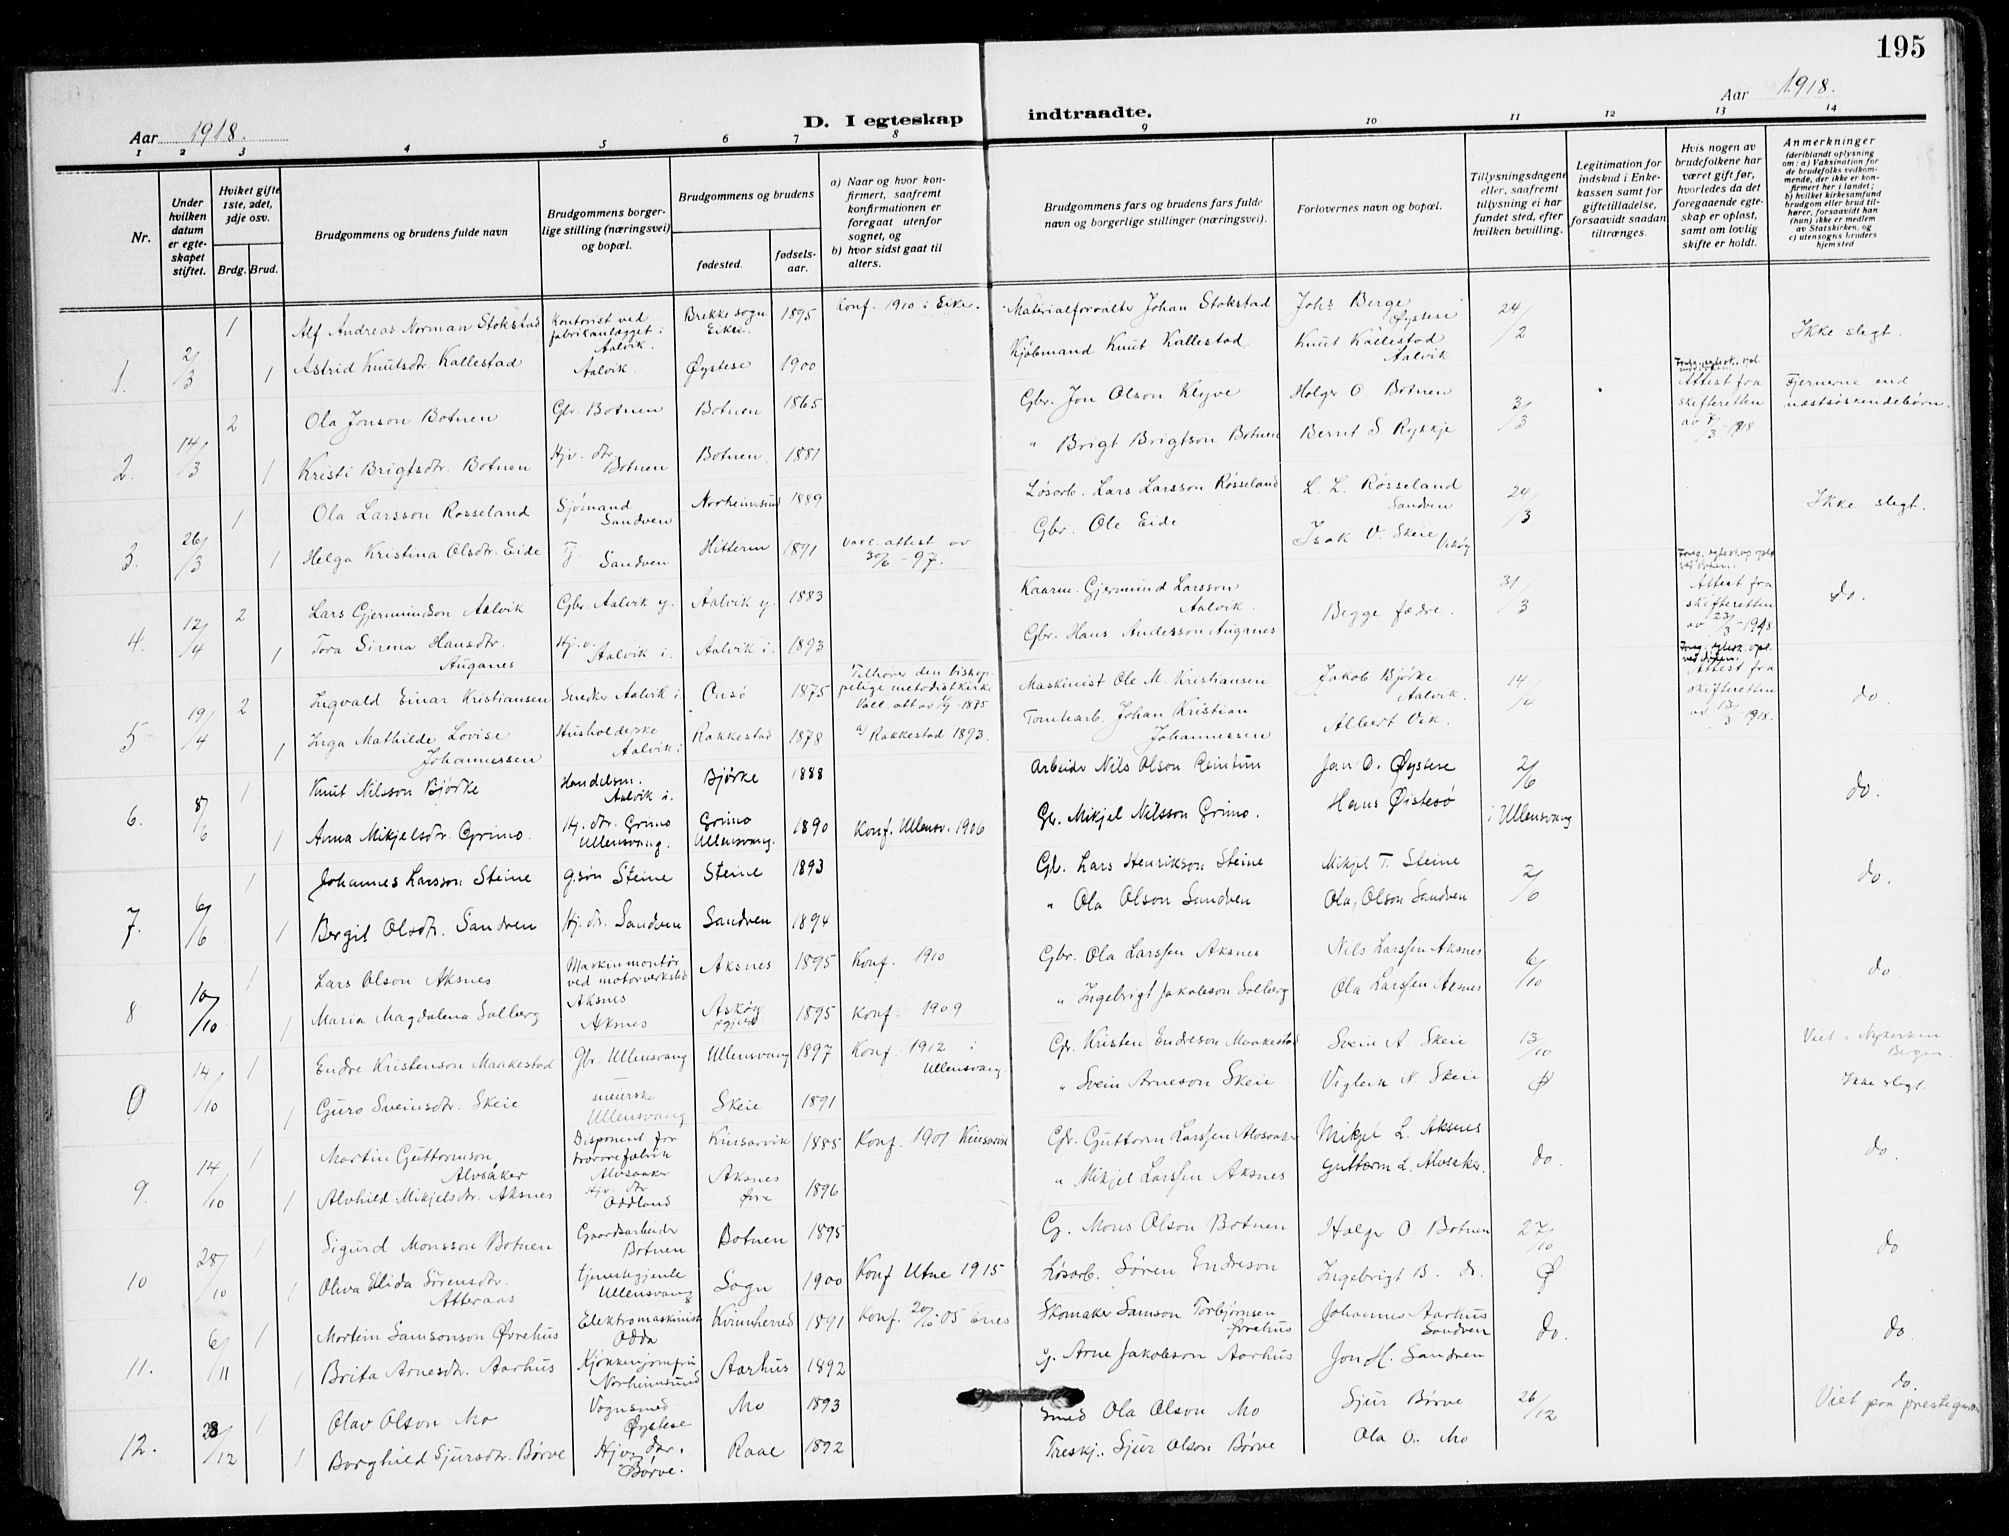 195
Aar 1918.
D. I egteskap indtraadte.
Aar 1918.
1 2 3 4 5 6 7 8 9 10 11 12 13 14
Nr.
Under hvilken datum er egteskapet stiftet.
Hvilket gifte 1ste, 2det, 3dje osv.
Brdg. Brud.
Brudgommens og brudens fulde navn
Brudgommens borgerlige stilling (næringsvei) og bopæl.
Brudgommens og brudens
fødested.
fødselsaar.
a) Naar og hvor konfirmert, saafremt konfirmationen er foregaat utenfor sognet, og
b) hvor sidst gaat til alters.
Brudgommens fars og brudens fars fulde navn og borgerlige stillinger (næringsvei).
Forlovernes navn og bopæl.
Tillysningsdagene eller, saafremt tillysning ei har fundet sted, efter hvilken bevilling.
Legitimation for indskud i Enkekassen samt for giftetilladelse, forsaavidt saadan tiltrænges.
Hvis nogen av brudefolkene har været gift før, hvorledes da det foregaaende egteskap er opløst, samt om lovlig skifte er holdt.
Anmerkninger
(deriblandt oplysning om: a) Vaksination for de brudefolks vedkommende, der ikke er konfirmert her i landet; b) hvilket kirkesamfund brudgom eller brud tilhører, forsaavidt han (hun) ikke er medlem av Statskirken, og c) utensogns bruders hjemsted
1. 2/3 1 Alf Andreas Norman Stokstad Kontorist ved fabrikanlægget i Aalvik. Brekke sogn Eiker. 1895 Konf. 1910 i Eiker. Materialforvalter Johan Stokstad Johs Berge Øystese 24/2 Ikke slegt.
1 Astrid Knutsdtr. Kallestad Aalvik. Øystese 1900 Kjøbmand Knut Kallestad Knut Kallestad Aalvik
2. 14/3 2 Ola Jonson Botnen Gbr. Botnen Botnen 1865 Gbr. Jon Olson Klyve Holger O Botnen 3/3 Attest fra skifteretten av 7/3 - 1918 Fjernerne end næstsøskendebørn.
1 Kristi Brigtsdtr. Botnen Hjv. dtr. Botnen Botnen. 1881 " Brigt Brigtson Botnen Bernt S. Rykkje
3. 26/3 1 Ola Larsson Rosseland Sjømand Sandven Norheimsund 1889 Løsarb. Lars Larsson Røsseland L. L. Røsseland Sandven 24/3 Ikke slegt.
1 Helga Kristina Olsdtr. Eide Tj Sandven Hitteren 1891 Vacc. attest av 30/6 - 97. Gbr. Ole Eide Isak V. Skeie Vikøy
4. 12/4 2 Lars Gjermundson Aalvik Gbr. Aalvik y. Aalvik y. 1883 Kaarm. Gjermund Larsson Aalvik. Begge fædre. 31/3 Attest fra skifteretten av 23/3 - 1918 do.
1 Tora Sirena Hansdtr. Auganes Hj. v. Aalvik i. Aalvik i. 1893 Gbr. Hans Andersson Auganes
5 19/4 2 Ingvald Einar Kristiansen Snedker Aalvik i. Onsø 1875 Tilhører den biskoppelige metodistkirke Maskinist Ole M. Kristiansen Jakob Bjørke Aalvik. 14/4 Attest fra skifteretten av 13/3 1918. do
1 Inga Mathilde Lovise Johannessen Husholderske Aalvik i Rakkestad 1878 a) Rakkestad 1893. Tomtearb. Johan Kristian Johannessen Albert Vik.
6. 8/6 1 Knut Nilsson Bjørke Handelsm. Aalvik i. Bjørke 1888 Arbeider Nils Olson Reintun Jan O. Øystese 2/6 do.
1 Anna Mikjelsdtr. Grimo. Hj. dtr. Grimo Ullensvang. Grimo Ullensvang. 1890 Konf. Ullensv. 1906 Gb. Mikjel Nilsson Grimo. Hans Øistesø i Ullensvang
7. 6/6 1 Johannes Larsson Steine g.søn Steine Steine 1893 Gb. Lars Henrikson Steine Mikjel T. Steine 2/6 do.
1 Bergit Olsdtr. Sandven Hj. dtr. Sandven Sandven 1894 " Ola Olson Sandven Ola Olson Sandven
8 10/10 1 Lars Olson Aksnes Maskinmontør ved motorverksted Aksnes Aksnes 1895 Konf. 1910 Gbr. Ola Larssen Aksnes Nils Larssen Aksnes 6/10 do
1 Maria Magdalena Solberg Aksnes Askøy 1895 Konf. 1909 " Ingebrigt Jakobson Solberg Ola Larssen Aksnes
0 14/10 1 Endre Kristenson Maakestad Gbr. Ullensvang Ullensvang 1897 Konf. 1912 i Ullensvang. Gbr. Kristen Endreson Maakestad Svein A. Skeie 13/10 Viet i Nykirken Bergen.
1 Guro Sveinsdtr. Skeie Ullensvang Skeie 1891 " Svein Arneson Skeie Vigleik N. Skeie Ø Ikke slegt.
9. 14/10 1 Martin Guttormson Alvsåker Disponent for Alvsaaker Kinsarvik 1885 Konf. 1901 Kinsarvik Gbr. Guttorm Larssen Alvsaaker Mikjel L. Aksnes do. do.
1 Alvhild Mikjelsdtr. Aksnes Hjv. dtr. Oddland Aksnes Øvre 1896 " Mikjel Larssen Aksnes Guttorm L. Alvsaker.
10 28/10 1 Sigurd Monsson Botnen Gaardsarbeider Botnen Botnen 1895 G. Mons Olson Botnen Holge O. Botnen 27/10 do
1 Oliva Elida Sørensdtr. Atteraas tjenestegjente Ullensvang Sogn 1900 Konf Utne 1915 Løsarb. Søren Endreson Ingebrigt B. do. Ø
11. 6/11 1 Mortein Samsonson Øvrehus Elektromaskinist Odda Kvinnherred 1891 Konf. 20/10 05 Enes Skomaker Samson Torbjørnsen Øvrehus Johannes Aarhus Sandven do. do.
1 Brita Arnesdtr. Aarhus Kjøkkenjomfru Norheimsund Aarhus 1892 G. Arne Jakobson Aarhus Jon H. Sandven
12. 28/12 1 Olav Olson Mo Vognsmed Øystese Mo 1893 Smed Ola Olson Mo Sjur Børve 26/12 do. Viet paa prestegaarden
1 Borghild Sjursdtr. Børve Hjv. dtr. Børve. Raae 1892 Treskj. Sjur Olson Børve Ola O. Mo